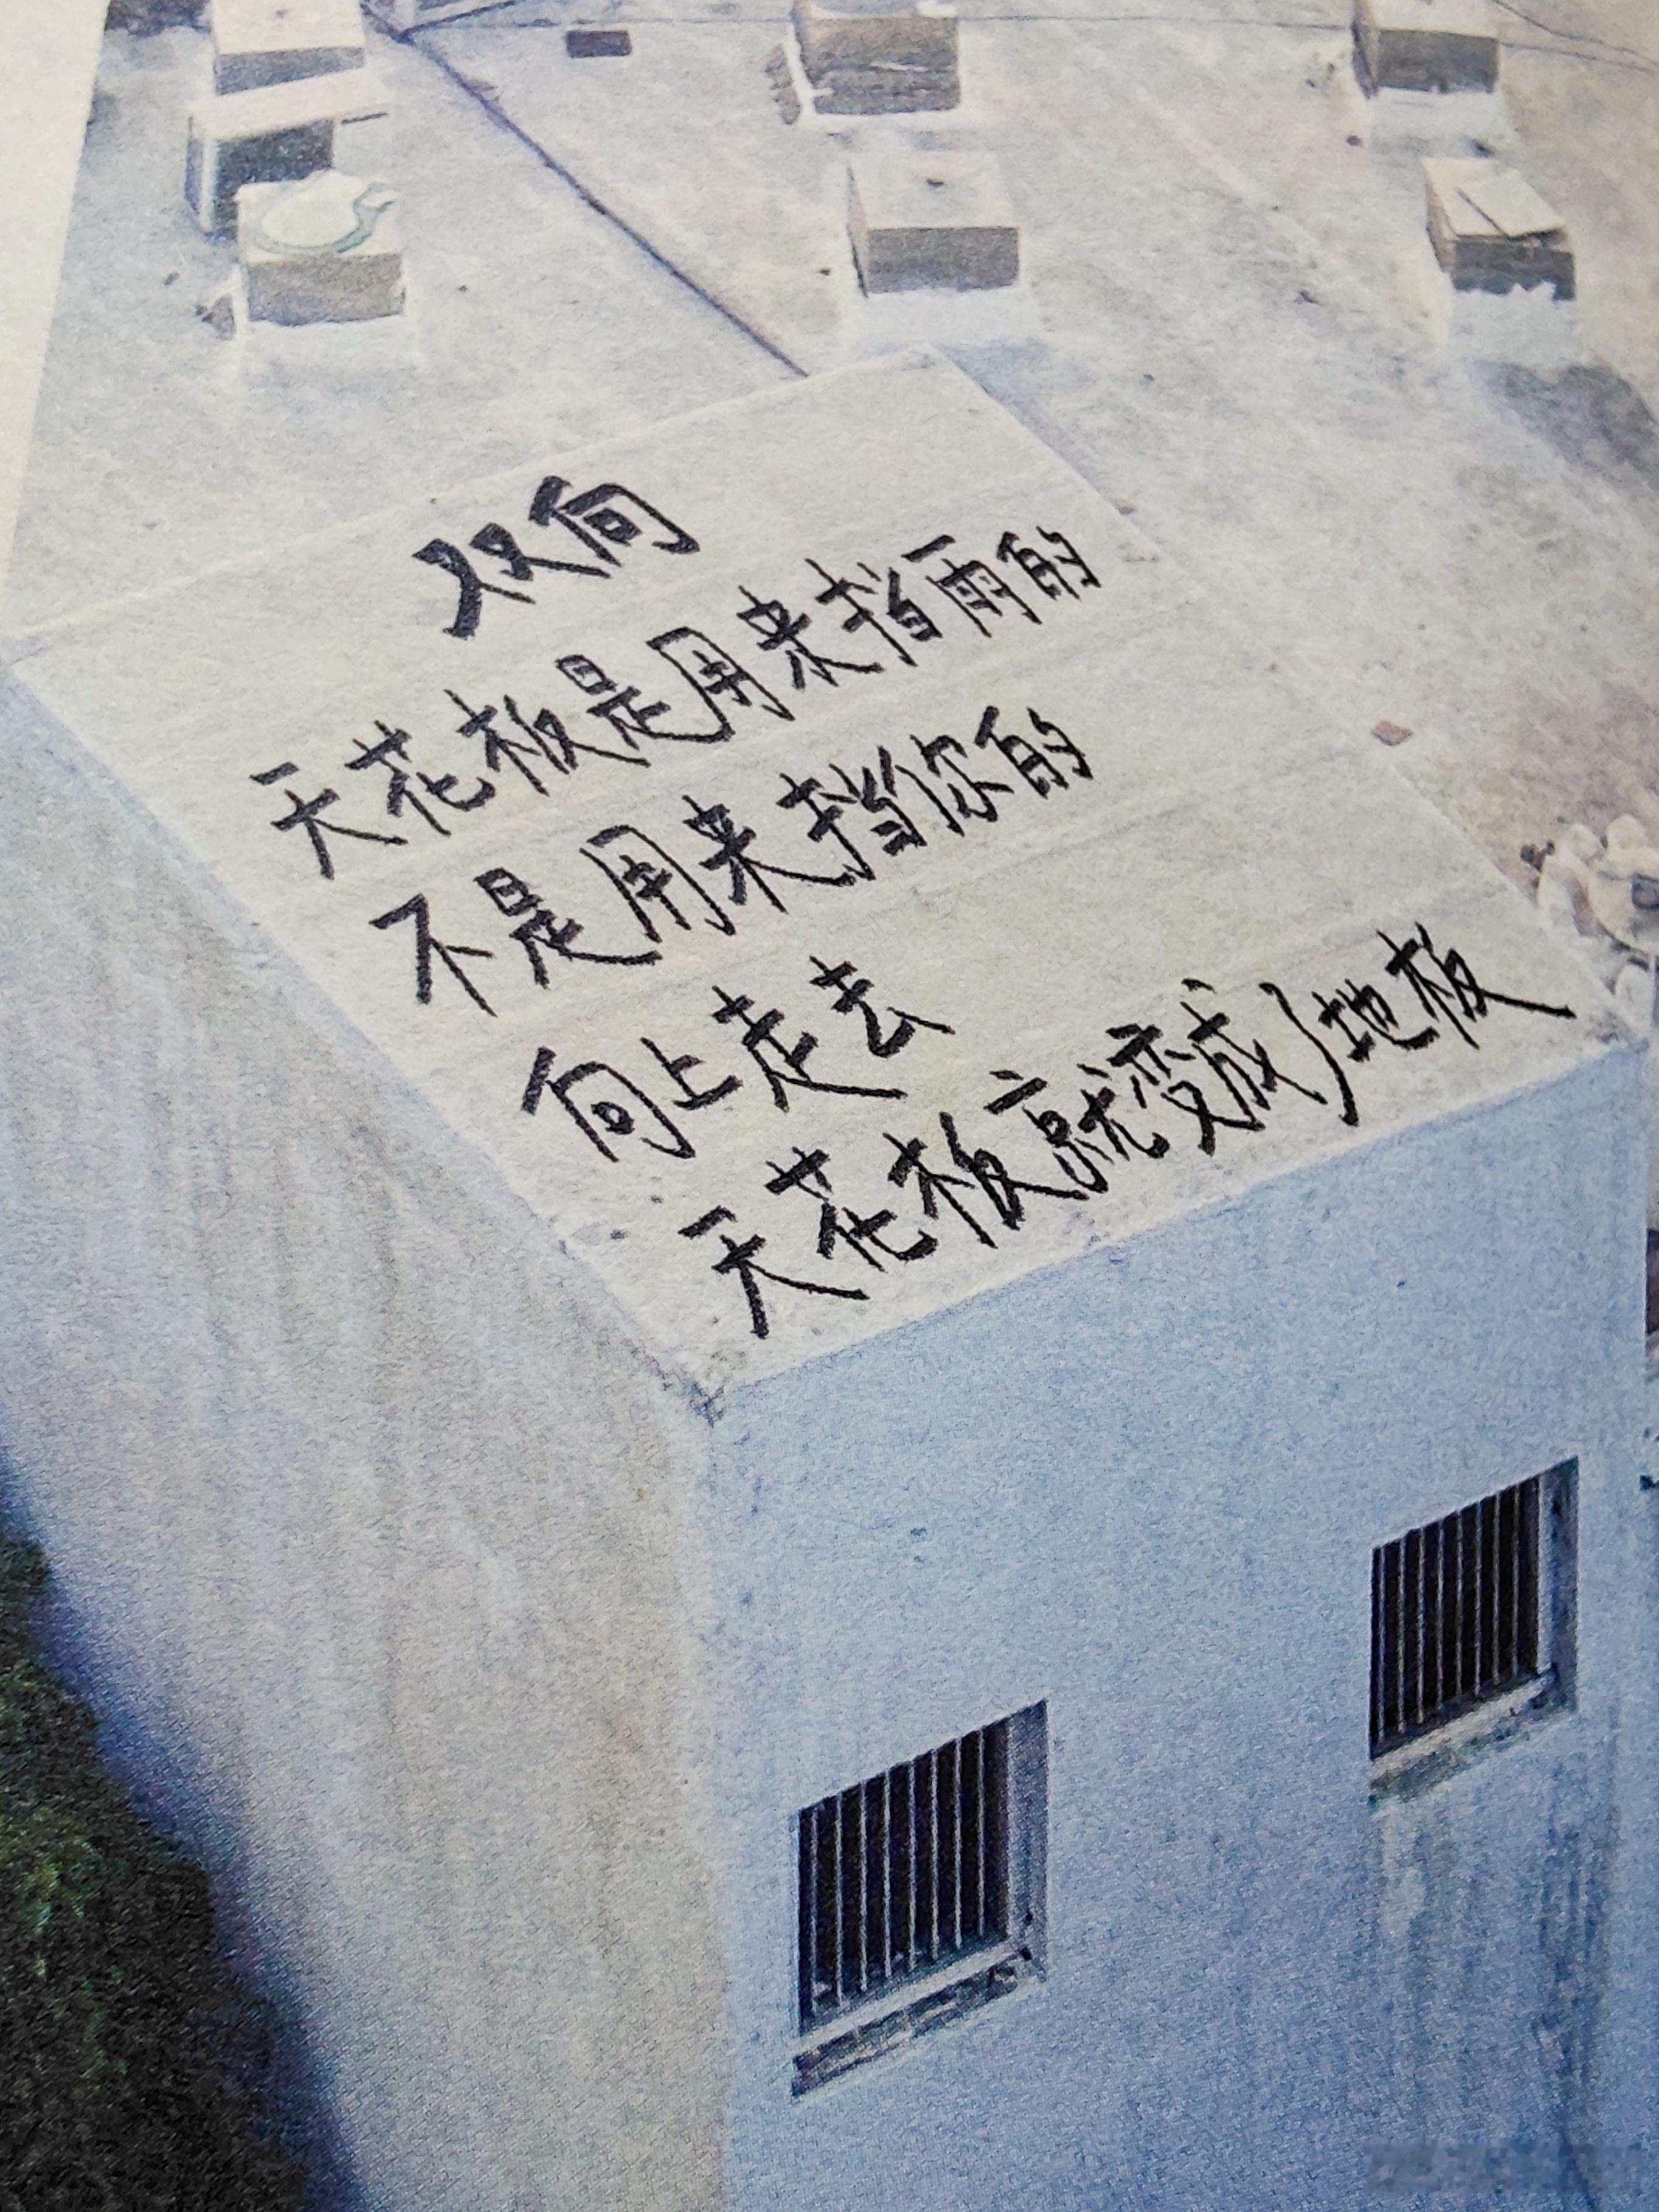 双向
天花板是用来挡雨的
不是用来挡你的
向上走去
天花板就变成了地板